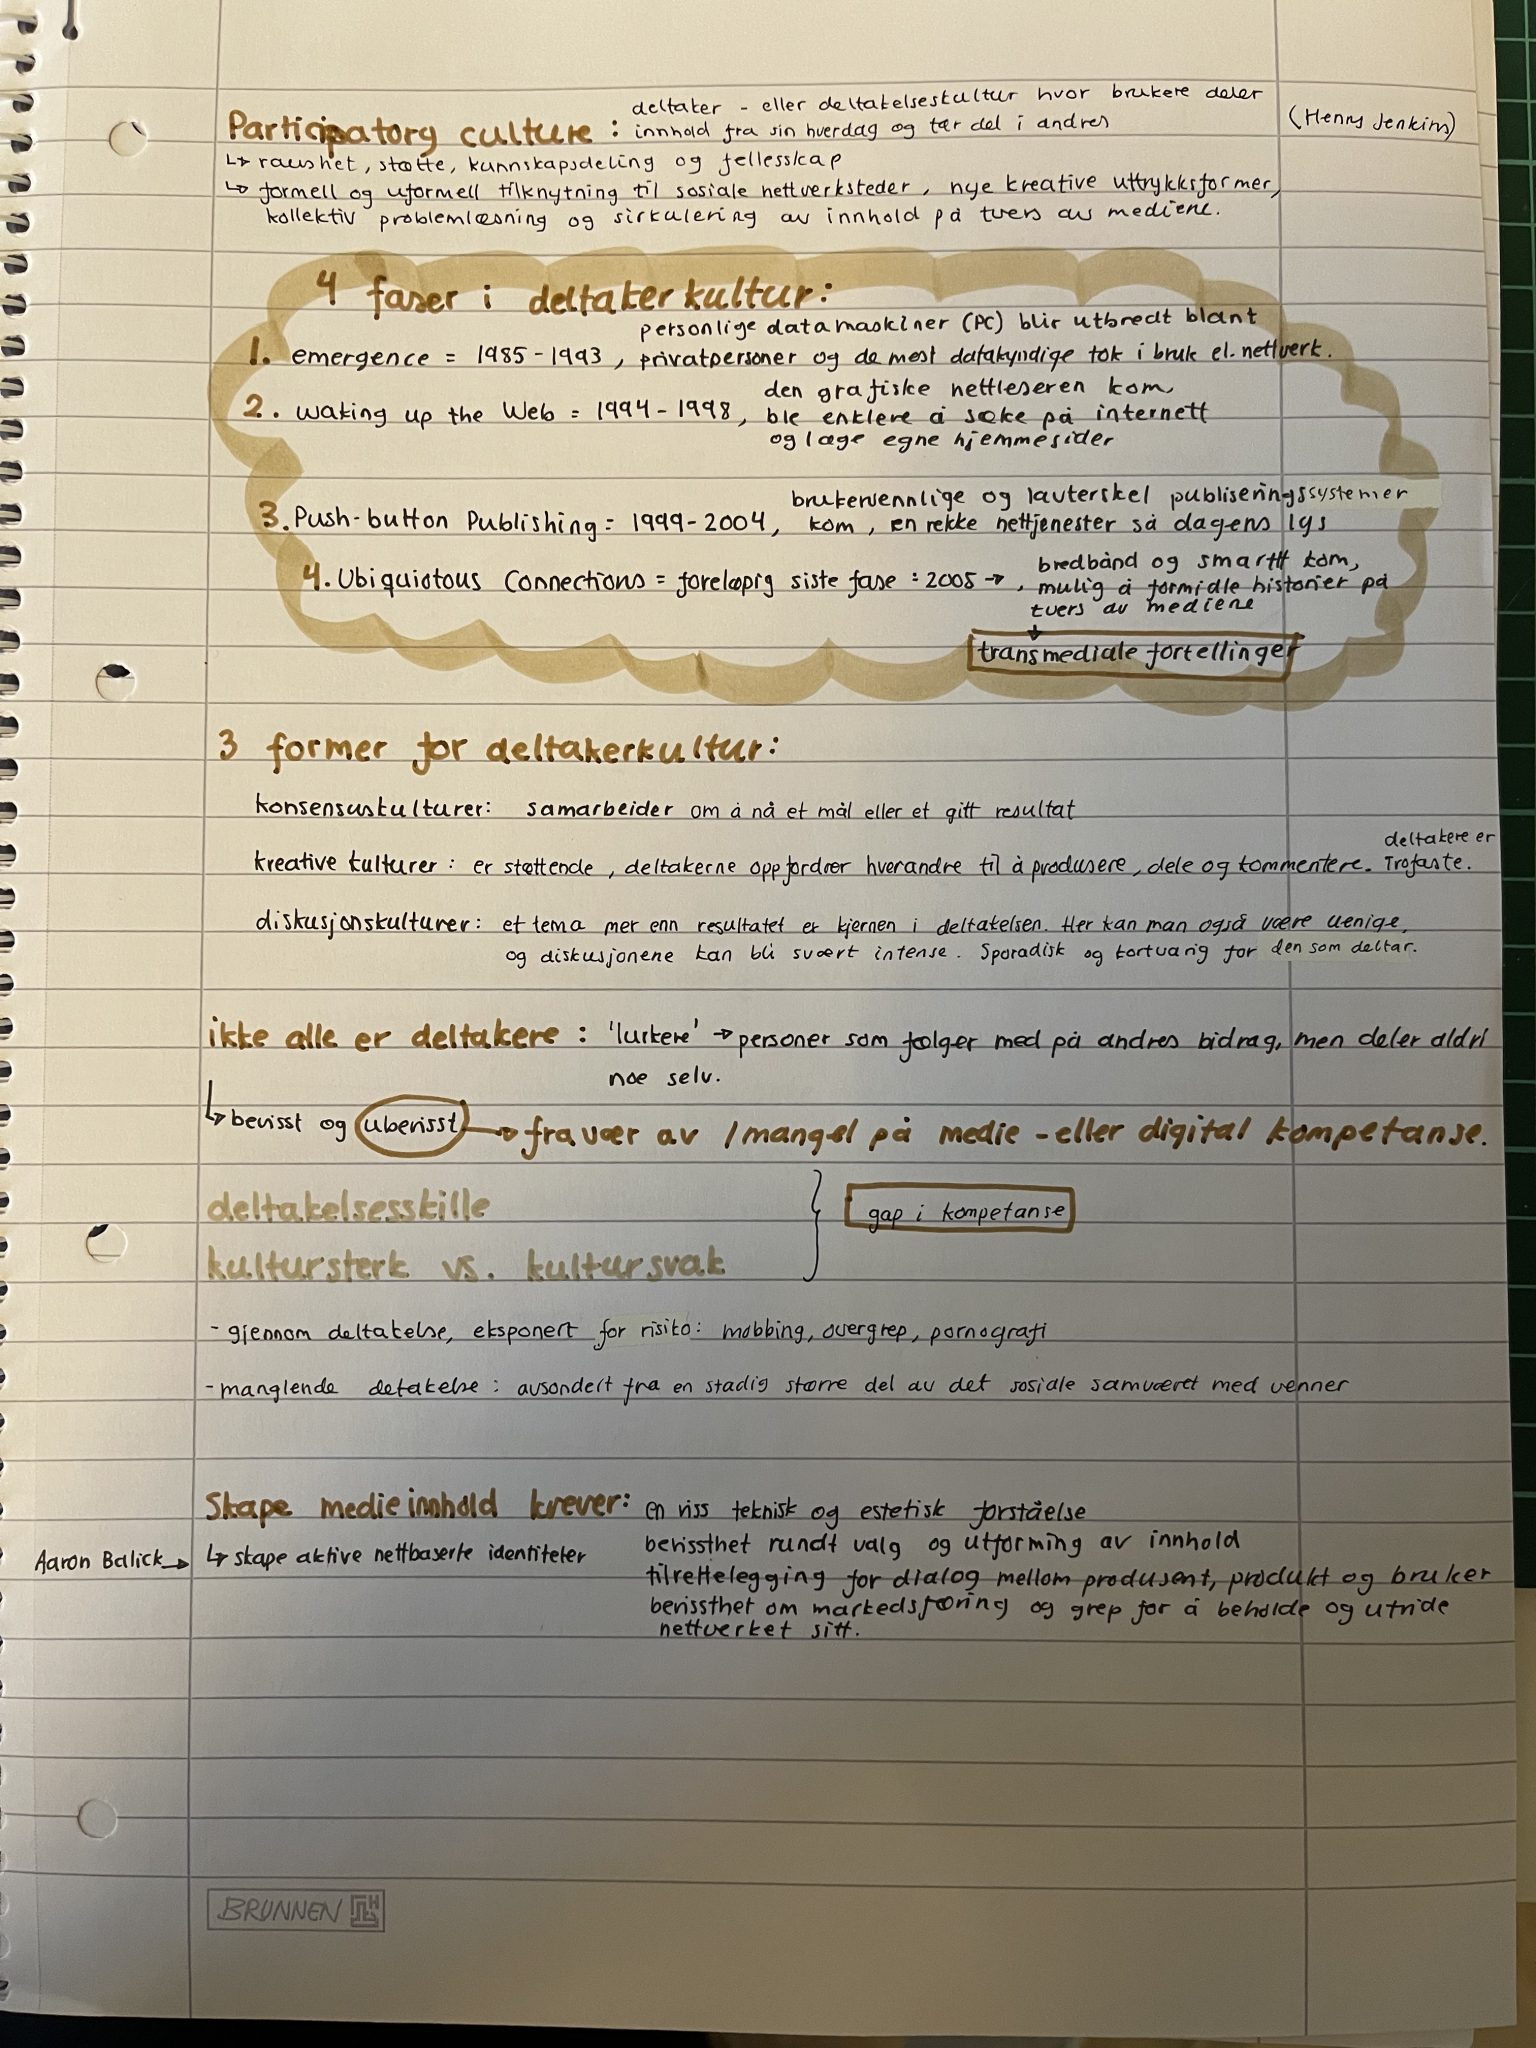 deltaker - eller deltakelseskultur hvor brukere deler
Participatory culture : innhold fra sin hverdag og tar del i andres (Henry Jenkins)
↳ raushet, støtte, kunnskapsdeling og fellesskap
↳ formell og uformell tilknytning til sosiale nettverksteder, nye kreative uttrykksformer,
kollektiv problemløsning og sirkulering av innhold på tvers av mediene.
4 faser i deltakerkultur:
personlige datamaskiner (PC) blir utbredt blant
1. emergence = 1985-1993, privatpersoner og de mest datakyndige tok i bruk el. nettverk.
den grafiske nettleseren kom,
2. Waking up the Web = 1994-1998, ble enklere å søke på internett
og lage egne hjemmesider
brukervennlige og lavterskel publiseringssystemer
3. Push-button Publishing = 1999-2004, kom, en rekke nettjenester så dagens lys
bredbånd og smarttlf kom,
4. Ubiquiotous Connections = foreløpig siste fase : 2005 →, mulig å formidle historier på
tvers av mediene
↓
transmediale fortellinger
3 former for deltakerkultur:
konsensuskulturer: samarbeider om å nå et mål eller et gitt resultat
deltakere er
kreative kulturer : er støttende, deltakerne oppfordrer hverandre til å produsere, dele og kommentere. Trofaste.
diskusjonskulturer: et tema mer enn resultatet er kjernen i deltakelsen. Her kan man også være uenige,
og diskusjonene kan bli svært intense. Sporadisk og kortvarig for den som deltar.
ikke alle er deltakere : 'lurkere' → personer som følger med på andres bidrag, men deler aldri
noe selv.
↳ bevisst og ubevisst → fravær av / mangel på medie - eller digital kompetanse.
deltakelsesskille
gap i kompetanse
kultursterk vs. kultursvak
- gjennom deltakelse, eksponert for risiko: mobbing, overgrep, pornografi
- manglende detakelse : avsondert fra en stadig større del av det sosiale samværet med venner
Skape medieinnhold krever: en viss teknisk og estetisk forståelse
bevissthet rundt valg og utforming av innhold
Aaron Balick → ↳ skape aktive nettbaserte identiteter
tilrettelegging for dialog mellom produsent, produkt og bruker
bevissthet om markedsføring og grep for å beholde og utvide
nettverket sitt.
BRUNNEN